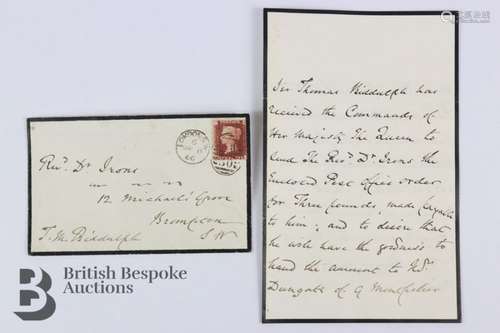 Revd. Dr. Irons
12 Michael's Grove
Brompton
S.W
T. M. Biddulph
LONDON
Sir Thomas Biddulph has
received the Commands of
Her Majesty The Queen to
send The Revd. Dr. Irons the
Enclosed Post Office order
for Three pounds, made payable
to him; and to desire that
he will have the goodness to
hand the amount to
Dungate of 9 Montpelier
British Bespoke
Auctions